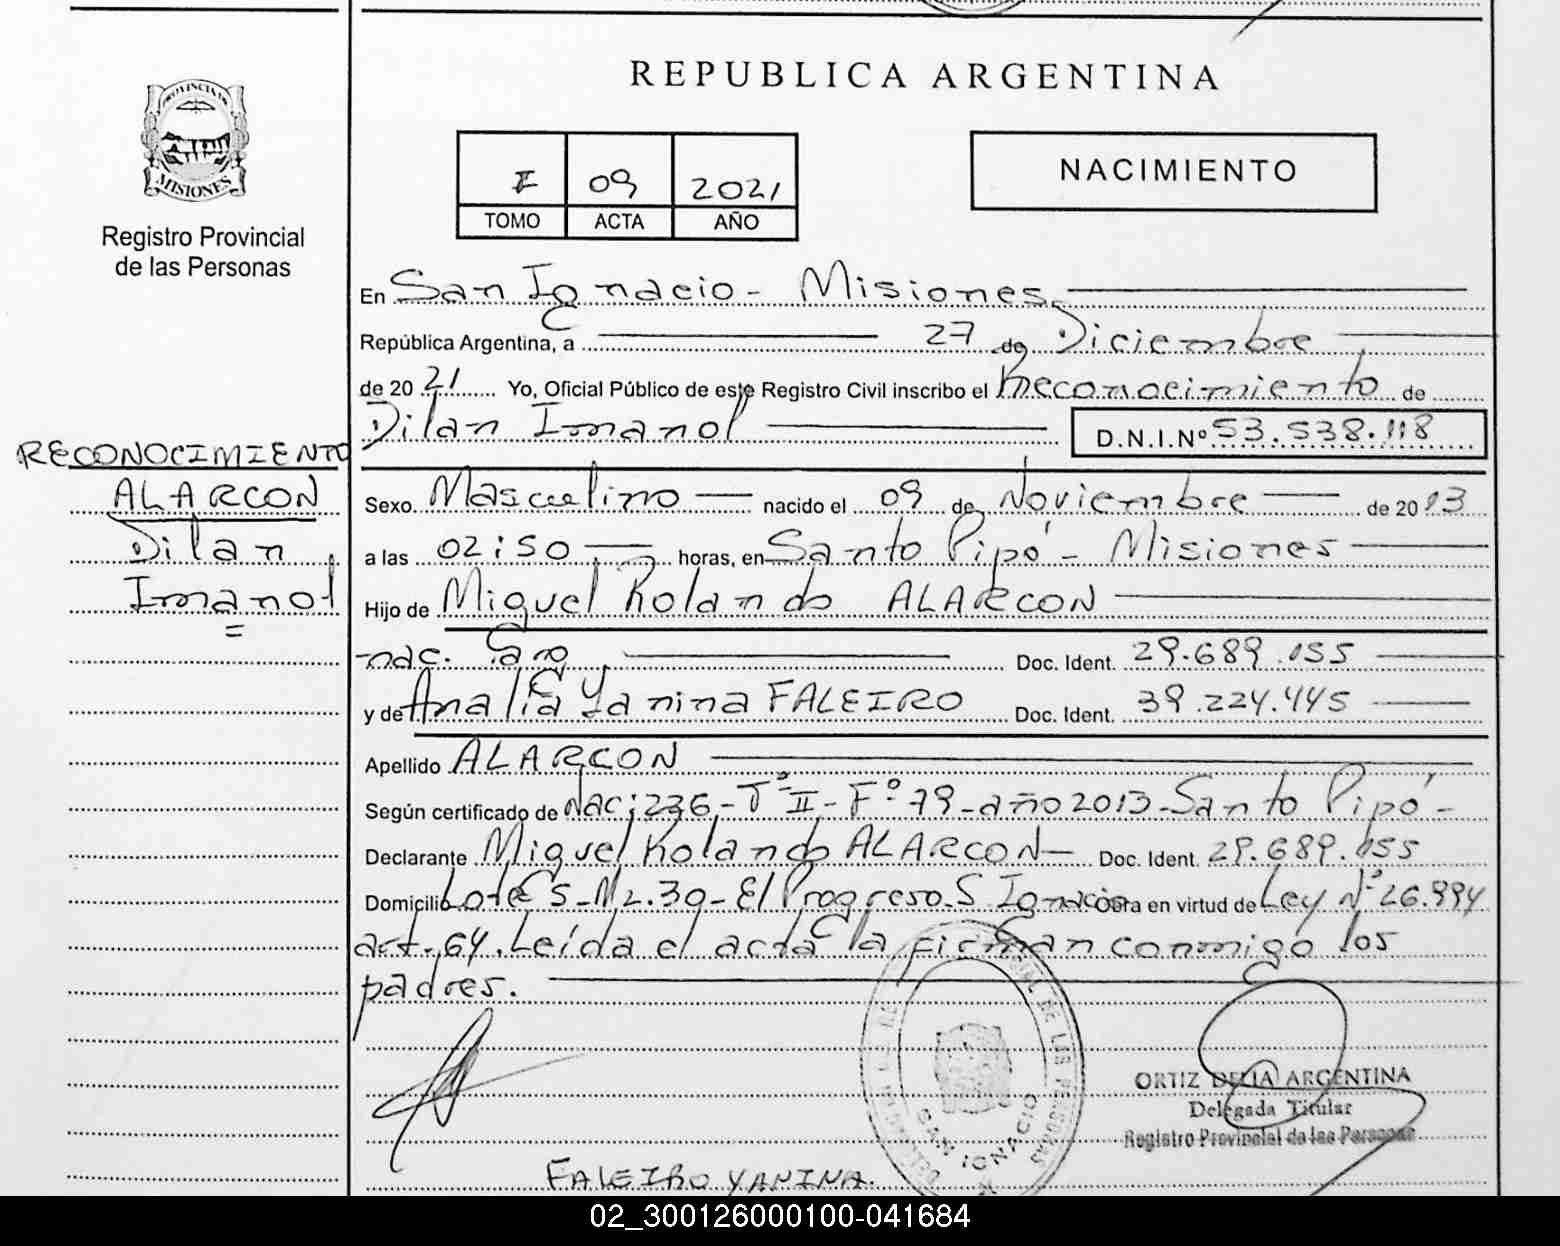 REPUBLICA ARGENTINA
PROVINCIA DE
MISIONES
Registro Provincial
de las Personas
I 09 2021
TOMO ACTA AÑO
NACIMIENTO
RECONOCIMIENTO
ALARCON
Dilan
Imanol
En San Ignacio - Misiones
República Argentina, a 27 de Diciembre
de 2021 Yo, Oficial Público de este Registro Civil inscribo el Reconocimiento de
Dilan Imanol D.N.I.Nº 53.538.118
Sexo Masculino nacido el 09 de Noviembre de 2013
a las 02:50 horas, en Santo Pipó - Misiones
Hijo de Miguel Rolando ALARCON
nac. Doc. Ident. 29.689.155
y de Analía Yanina FALEIRO Doc. Ident. 39.224.445
Apellido ALARCON
Según certificado de Nac: 236 - Tº II - Fº 79 - año 2013 - Santo Pipó -
Declarante Miguel Rolando ALARCON Doc. Ident. 29.689.155
Domicilio Lote 5 - Mz. 39 - El Progreso. S. Ignacio. Obra en virtud de Ley Nº 26.994
art. 64. Leída el acta la firman conmigo los
padres.
SAN IGNACIO
ORTIZ DELIA ARGENTINA
Delegada Titular
Registro Provincial de las Personas
FALEIRO YANINA.
02_300126000100-041684